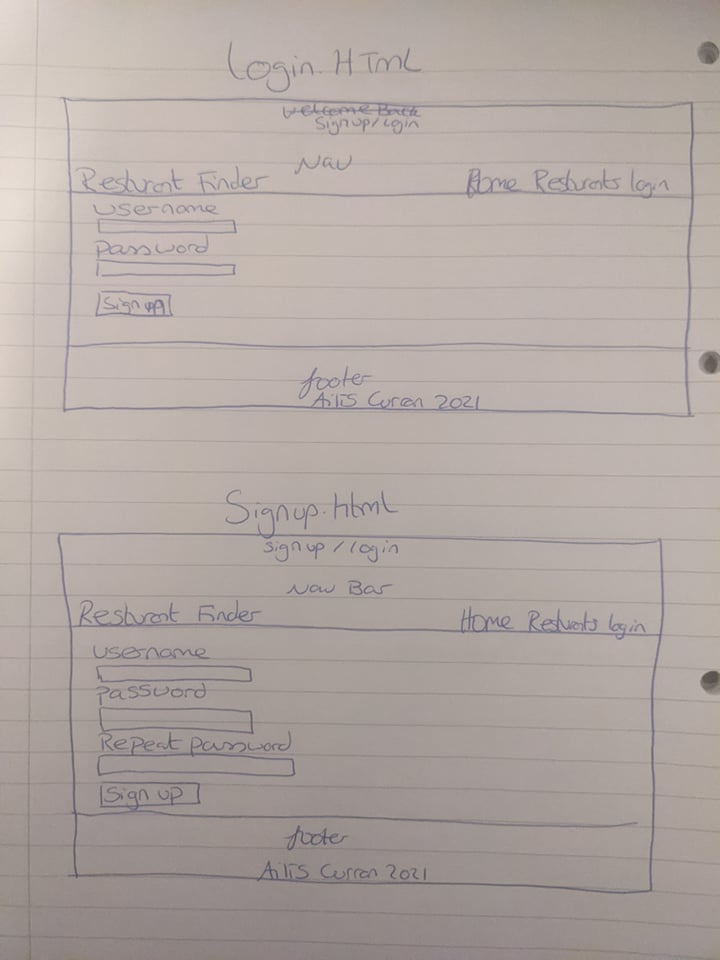 Login.HTmL
Welcome Back
Signup/Login
Nav
Resturant Finder Home Resturants login
username
password
Sign up
footer
Ailis Curran 2021
Signup.html
signup / login
Nav Bar
Resturant Finder Home Resturants login
username
password
Repeat password
Sign up
footer
Ailis Curran 2021